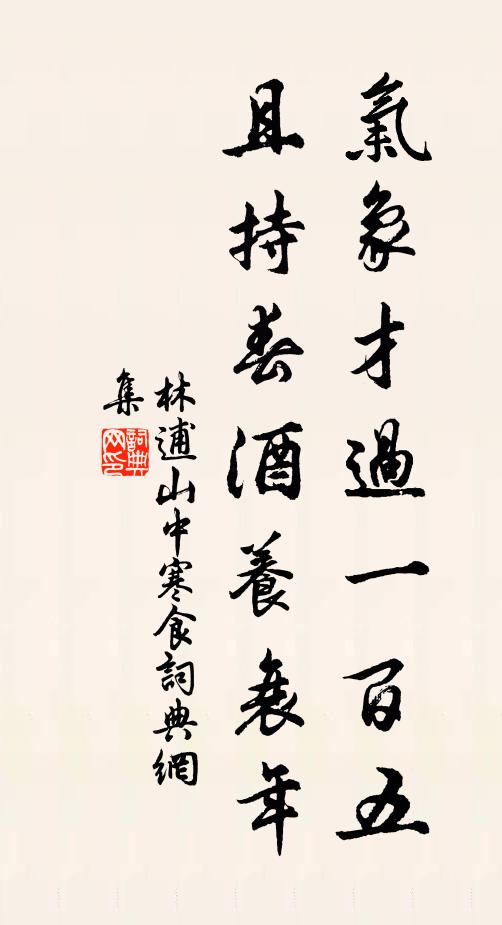 氣象才過一百五
且持春酒養衰年
林逋山中寒食詞典網
集
詞典
网印